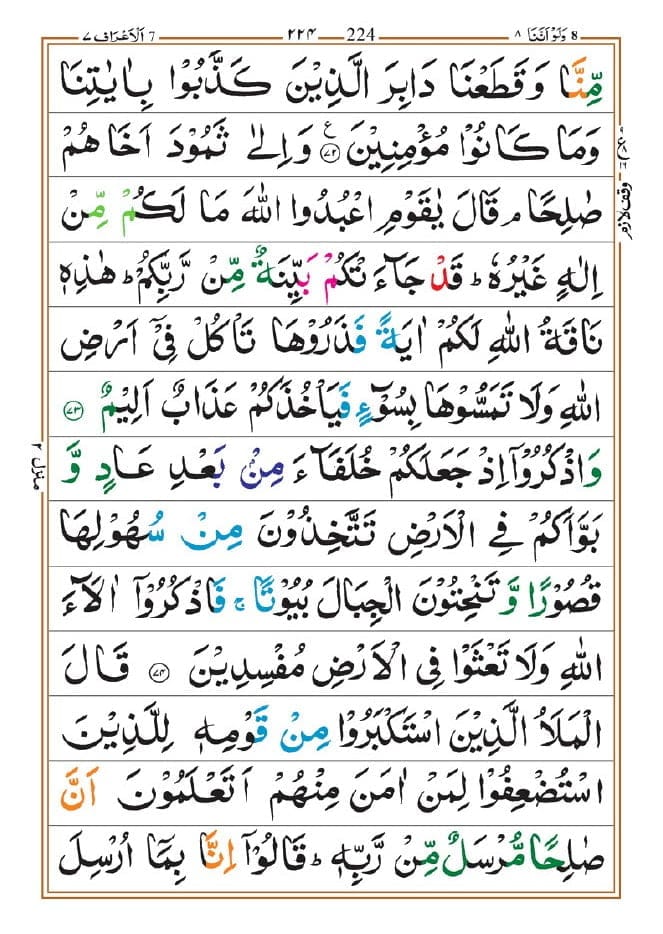 8 وَلَوْ اَنَّنَا ۸ 224 ۲۲۴ 7 اَلْاَعْرَاف ۷
مِّنَّا وَ قَطَعْنَا دَابِرَ الَّذِيْنَ كَذَّبُوْا بِاٰيٰتِنَا
وَمَا كَانُوْا مُؤْمِنِيْنَ ۧ ۷۲ وَ اِلٰى ثَمُوْدَ اَخَاهُمْ
صٰلِحًا ۘ قَالَ يٰقَوْمِ اعْبُدُوا اللّٰهَ مَا لَكُمْ مِّنْ
اِلٰهٍ غَيْرُهٗ ؕ قَدْ جَآءَتْكُمْ بَيِّنَةٌ مِّنْ رَّبِّكُمْ ؕ هٰذِهٖ
نَاقَةُ اللّٰهِ لَكُمْ اٰيَةً فَذَرُوْهَا تَاْكُلْ فِيْۤ اَرْضِ
اللّٰهِ وَلَا تَمَسُّوْهَا بِسُوْٓءٍ فَيَاْخُذَكُمْ عَذَابٌ اَلِيْمٌ ۷۳
وَاذْكُرُوْۤا اِذْ جَعَلَكُمْ خُلَفَآءَ مِنْۢ بَعْدِ عَادٍ وَّ
بَوَّاَكُمْ فِي الْاَرْضِ تَتَّخِذُوْنَ مِنْ سُهُوْلِهَا
قُصُوْرًا وَّ تَنْحِتُوْنَ الْجِبَالَ بُيُوْتًا ۚ فَاذْكُرُوْۤا اٰلَآءَ
اللّٰهِ وَلَا تَعْثَوْا فِى الْاَرْضِ مُفْسِدِيْنَ ۷۴ قَالَ
الْمَلَاُ الَّذِيْنَ اسْتَكْبَرُوْا مِنْ قَوْمِهٖ لِلَّذِيْنَ
اسْتُضْعِفُوْا لِمَنْ اٰمَنَ مِنْهُمْ اَتَعْلَمُوْنَ اَنَّ
صٰلِحًا مُّرْسَلٌ مِّنْ رَّبِّهٖ ؕ قَالُوْۤا اِنَّا بِمَاۤ اُرْسِلَ
وقف لازم
منزل ۲